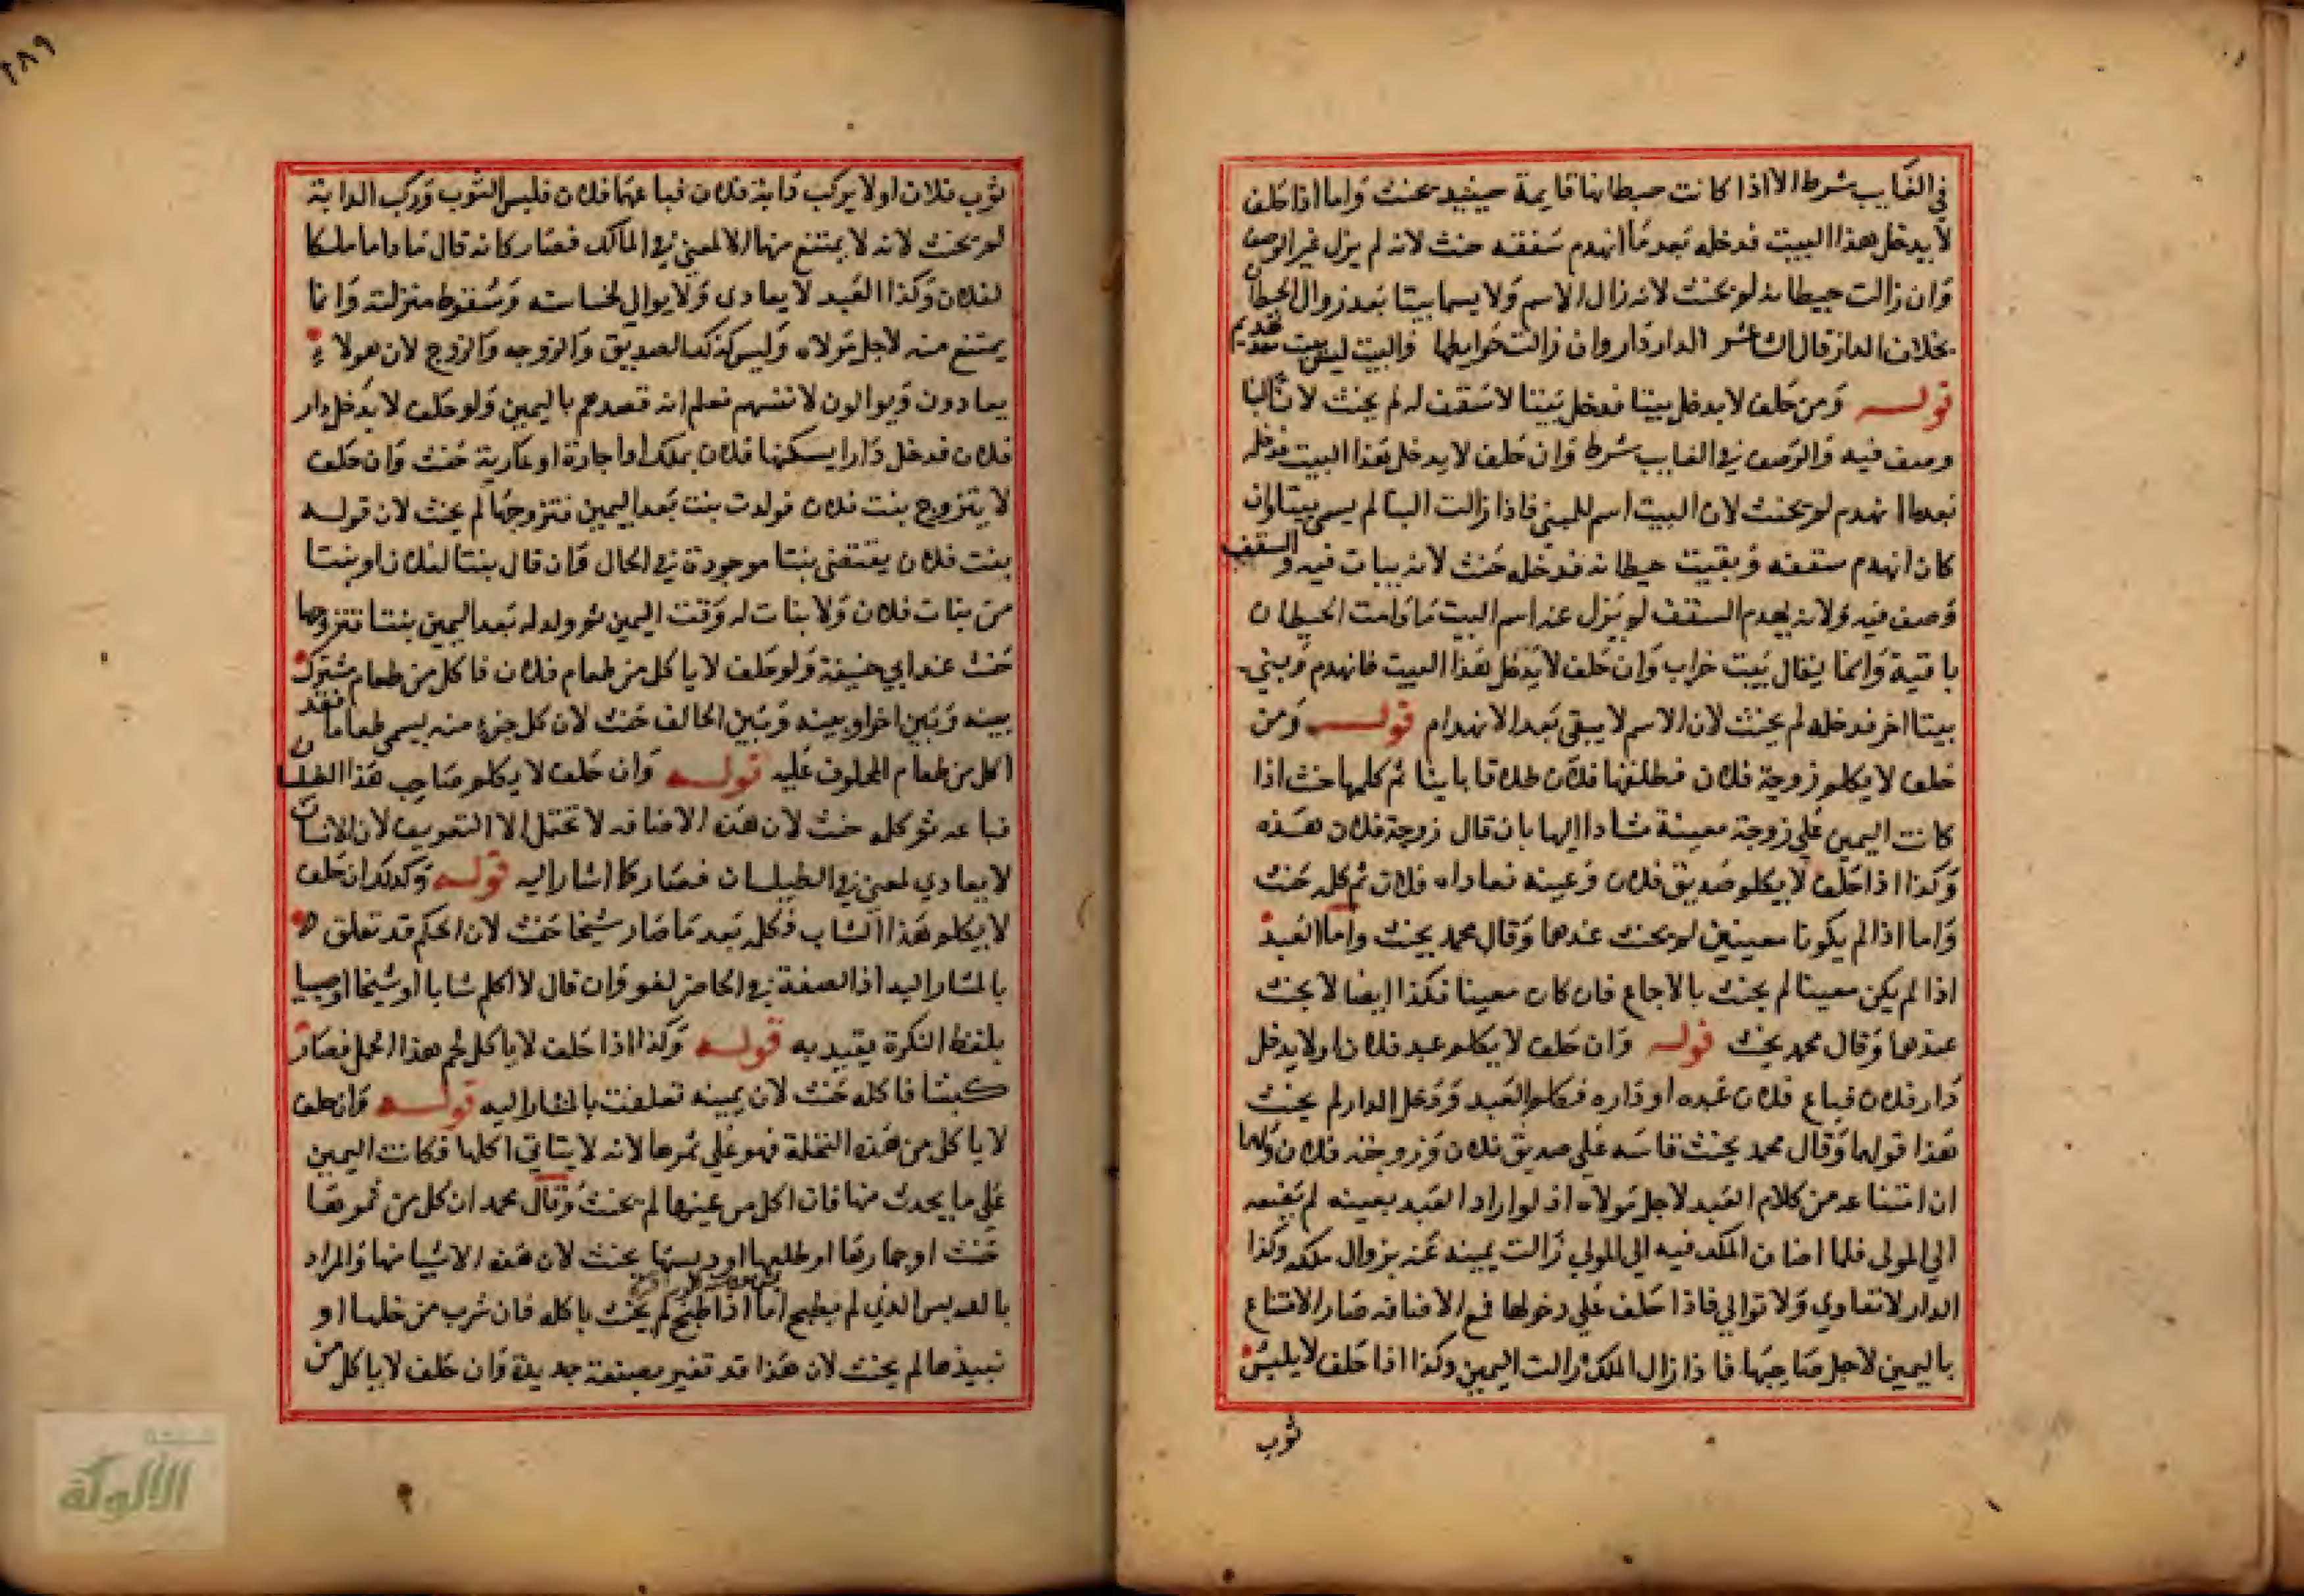 في الغايب شرط الا اذا كانت حيطانها قايمة حينيد يحنث واما اذا حلف
لا يدخل هذا البيت فدخله بعد ما انهدم سقفه حنث لانه لم يزل غير الوصف
وان زالت حيطانه لم يحنث لانه زال الاسم ولا يسما بيتا بعد زوال الحيطان
بخلاف الدار قال الدار دار وان زالت حوايطها والبيت ليس ببيت
قوله ومن حلف لا يدخل بيتا فدخل بيتا لا سقف له لم يحنث لان البنا
وصف فيه والوصف في الغايب شرط وان حلف لا يدخل هذا البيت فدخله
بعدما انهدم لم يحنث لان البيت اسم للمبني فاذا زالت البنا لم يسمى بيتا وان
كان انهدم سقفه وبقيت حيطانه فدخله حنث لانه يبات فيه والسقف
وصف فيه ولانه بعدم السقف لم يزل عنه اسم البيت ما دامت الحيطان
باقية وانما يقال بيت خراب وان حلف لا يدخل هذا البيت فانهدم وبني
بيتا اخر فدخله لم يحنث لان الاسم لا يبقى بعد الانهدام قوله ومن
حلف لا يكلم زوجة فلان فطلقها فلان طلاقا باينا ثم كلمها حنث اذا
كانت اليمين على زوجة معينة مشادا اليها بان قال زوجة فلان هذه
وكذا اذا حلف لا يكلم صديق فلان وعينه فعاداه فلان ثم كلمه حنث
واما اذا لم يكونا معينين لم يحنث عندهما وقال محمد يحنث واما العبد
اذا لم يكن معينا لم يحنث بالاجاع فان كان معينا فكذا ايضا لا يحنث
عندهما وقال محمد يحنث قوله وان حلف لا يكلم عبد فلان اولا يدخل
دار فلان فباع فلان عبده او داره فكلم العبد ودخل الدار لم يحنث
هذا قولهما وقال محمد يحنث قاسه على صديق فلان وزوجته فلان ولهما
ان امتناعه من كلام العبد لاجل مولاه اذ لو اراد العبد بعينه لم يضفه
الي المولى فلما اضاف الملك فيه الى المولي زالت يمينه عنه بزوال ملكه وكذا
الدار لا تعادي ولا توالي فاذا حلف على دخولها مع الاضافه صار الامتناع
باليمين لاجل صاحبها فاذا زال الملك زالت اليمين وكذا اذا حلف لا يلبس
ثوب
١٨٩
ثوب فلان او لا يركب دابة فلان فباعهما فلان فلبس الثوب وركب الدابة
لم يحنث لانه لا يمتنع منها الا لمعنى في المالك فصار كانه قال ما داما ملكا
لفلان وكذا العبد لا يعادى ولا يوالي لخساسته وسقوط منزلته وانما
يمتنع منه لاجل مولاه وليس كذلك الصديق والزوجه والزوج لان هولاء
يعادون ويوالون لانفسهم فعلم انه قصدهم باليمين ولو حلف لا يدخل دار
فلان فدخل دارا يسكنها فلان بملك او اجارة او عارية حنث وان حلف
لا يتزوج بنت فلان فولدت بنت بعد اليمين فتزوجها لم يحنث لان قوله
بنت فلان يقتضى بنتا موجودة في الحال وان قال بنتا لفلان او بنتا
من بنات فلان ولا بنات له وقت اليمين ثم ولد له بعد اليمين بنتا فتزوجها
حنث عند ابي حنيفة ولو حلف لا ياكل من طعام فلان فاكل من طعام مشترك
بينه وبين اخر او بينه وبين الحالف حنث لان كل جزء منه يسمى طعاما فقد
اكل من طعام المحلوف عليه قوله وان حلف لا يكلم صاحب هذا الطيلسان
فباعه ثم كلمه حنث لان هذه الاضافه لا تحتمل الا التعريف لان الانسان
لا يعادي لمعنى في الطيلسان فصار كما اشار اليه قوله وكذلك ان حلف
لا يكلم هذا الشاب فكلمه بعد ما صار شيخا حنث لان الحكم قد تعلق
بالمشار اليه اذ الصفة في الحاضر لغو وان قال لا اكلم شابا او شيخا او صبيا
بلفظ النكرة يقيد به قوله وكذا اذا حلف لا ياكل لحم هذا الحمل فصار
كبشا فاكله حنث لان يمينه تعلقت بالمشار اليه قوله وان حلف
لا ياكل من هذه النخلة فهو على ثمرها لانه لا يتاتى اكلها فكانت اليمين
على ما يحدث منها فان اكل من عينها لم يحنث وقال محمد ان اكل من ثمرها
حنث او جمارها او طلعها او دبسها يحنث لان هذه الاشيا منها والمراد
بالدبس الذي لم يطبخ اما اذا طبخ لم يحنث باكله فان شرب من خلها او
نبيذها لم يحنث لان هذا قد تغير بصنعة جديدة وان حلف لا ياكل من
الألوكة